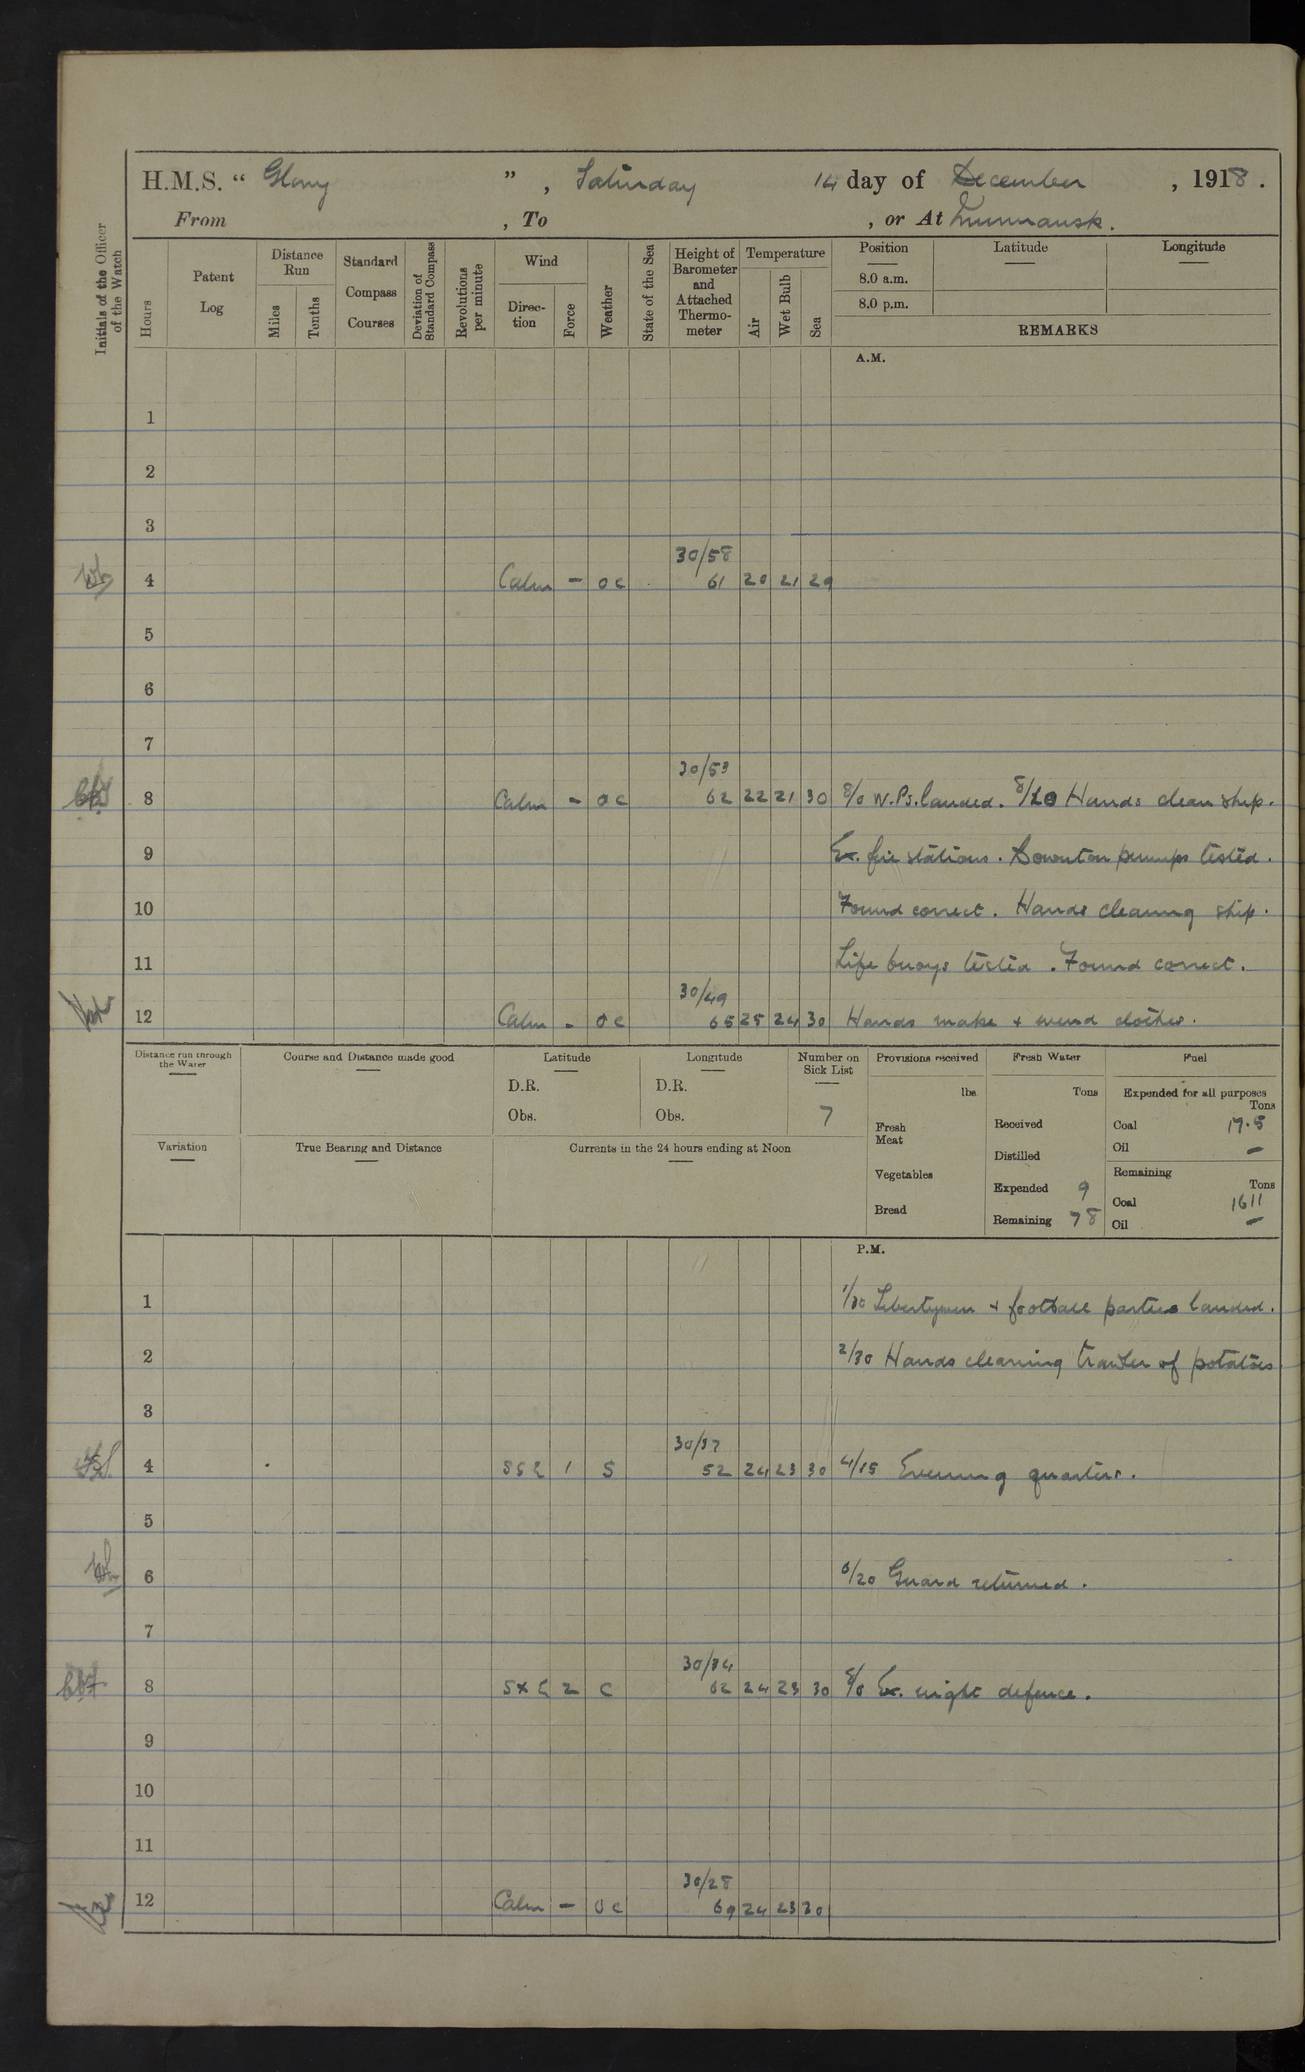 H.M.S. “ Glory ” , Saturday 14 day of December , 1918 .
From , To , or At Murmansk.
Initials of the Officer of the Watch
Hours
Patent Log
Distance Run
Miles
Tenths
Standard Compass Courses
Deviation of Standard Compass
Revolutions per minute
Wind
Direction
Force
Weather
State of the Sea
Height of Barometer and Attached Thermometer
Temperature
Air
Wet Bulb
Sea
Position Latitude Longitude
8.0 a.m.
8.0 p.m.
REMARKS
A.M.
1
2
3
30/58
4 Calm - oc 61 20 21 29
5
6
7
30/53
8 Calm - oc 62 22 21 30 8/0 W.Ps. landed. 8/20 Hands clean ship.
9 Ex. fire stations. Downton pumps tested.
10 Found correct. Hands cleaning ship.
11 Life buoys tested. Found correct.
30/49
12 Calm - oc 65 25 24 30 Hands make + mend clothes.
Distance run through the Water
Course and Distance made good
Latitude
D.R.
Obs.
Longitude
D.R.
Obs.
Number on Sick List
7
Variation
True Bearing and Distance
Currents in the 24 hours ending at Noon
Provisions received
lbs
Fresh Meat
Vegetables
Bread
Fresh Water
Tons
Received
Distilled
Expended 9
Remaining 78
Fuel
Expended for all purposes
Tons
Coal 17.5
Oil -
Remaining
Tons
Coal 1611
Oil -
P.M.
1 1/30 Libertymen + football parties landed.
2 2/30 Hands cleaning trawler of potatoes
3
30/37
4 SSE 1 S 52 24 23 30 4/15 Evening quarters.
5
6 6/20 Guard returned.
7
30/34
8 SxE 2 C 62 24 23 30 8/0 Ex. night defence.
9
10
11
30/28
12 Calm - oc 69 24 23 30